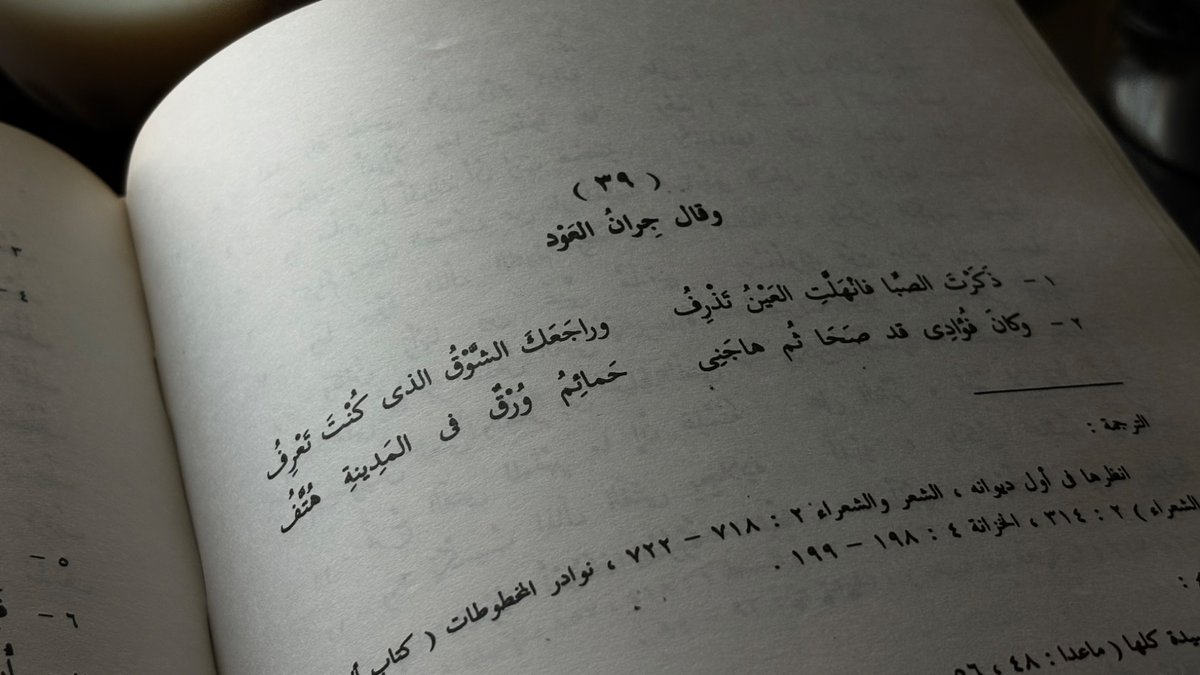 ( ٣٩ )
وقال جِرانُ العَوْد
١ – ذَكَرْتَ الصبَّا فانْهَلَّتِ العَيْنُ تَذْرِفُ وراجَعَكَ الشَّوْقُ الذى كُنْتَ تَعْرِفُ
٢ – وكانَ فُؤَادِى قد صَحَا ثُم هاجَنِى حَمائِمُ وُرْقٌ فى المَدِينةِ هُتَّفُ
الترجمة :
انظرها فى أول ديوانه ، الشعر والشعراء ٢ : ٧١٨ – ٧٢٢ ، نوادر المخطوطات ( كتاب
الشعراء ) ٢ : ٣١٤ ، الخزانة ٤ : ١٩٨ – ١٩٩ .
كلها ( ماعدا : ٤٨ ،
٣
٤ –
٥ –
٦ –